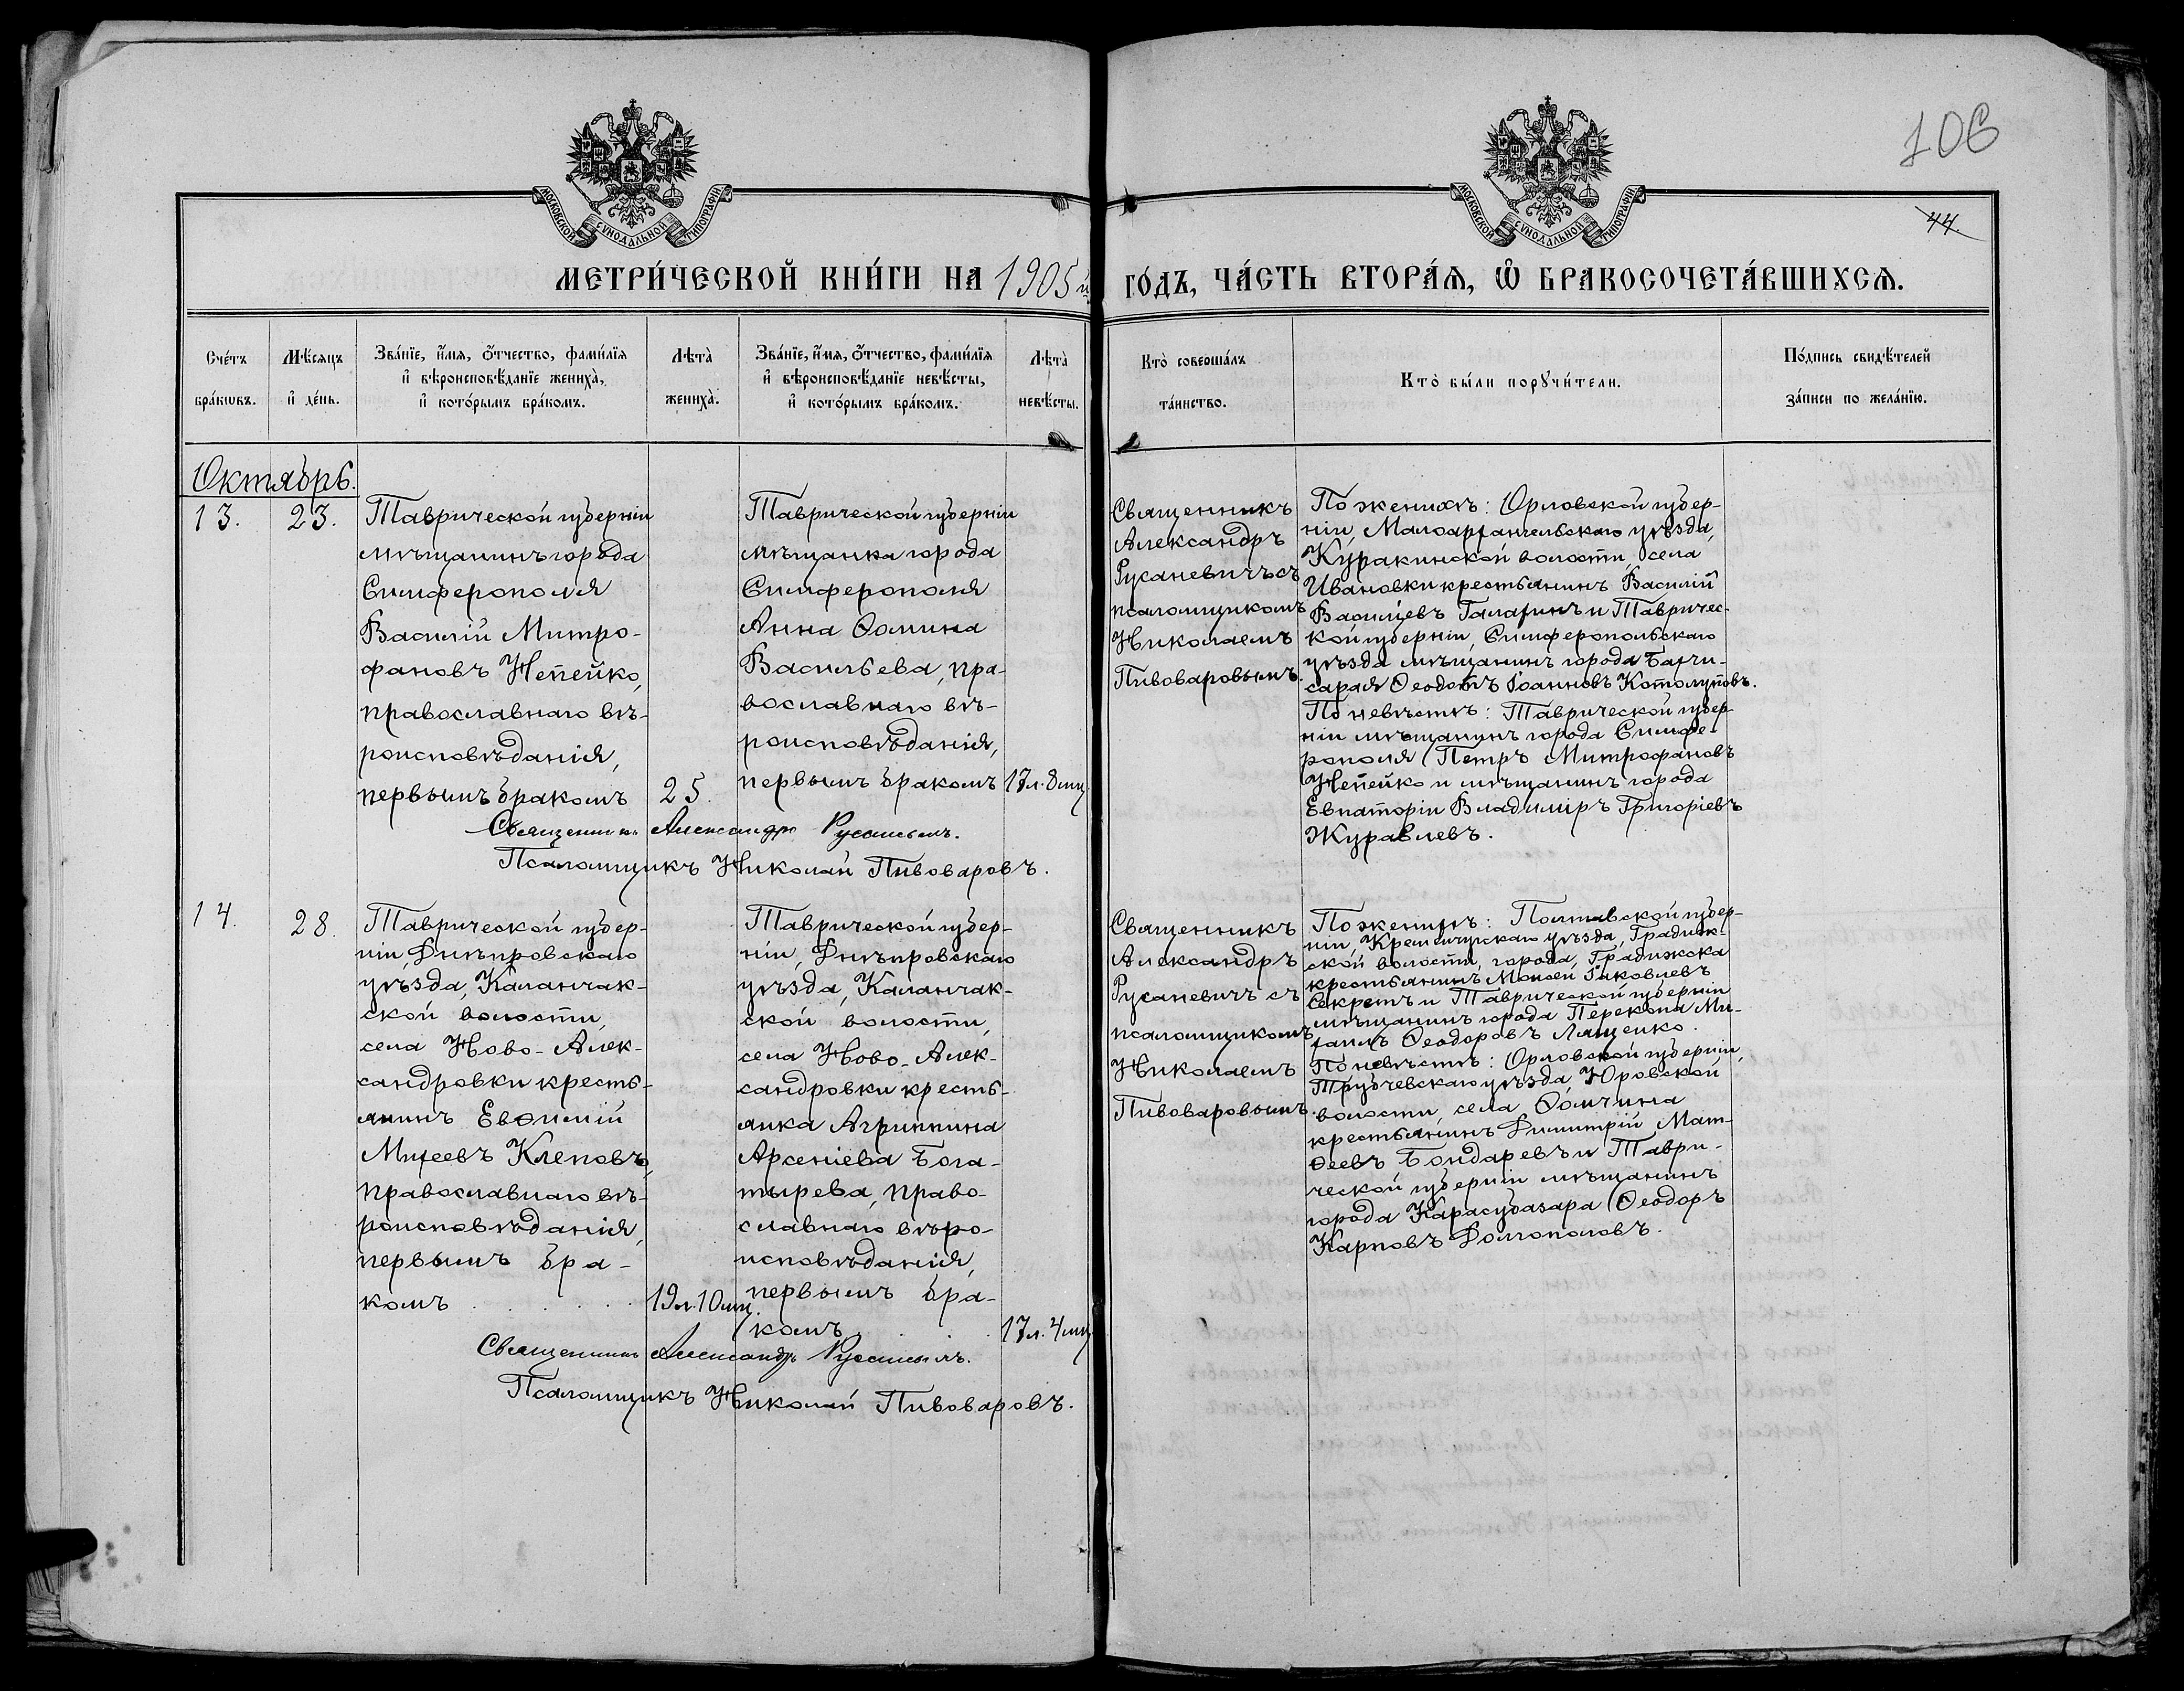 106
44.
МОСКОВСКОЙ СѴНОДАЛЬНОЙ ТИПОГРАФІИ
МОСКОВСКОЙ СѴНОДАЛЬНОЙ ТИПОГРАФІИ
МЕТРИ́ЧЕСКОЙ КНИ́ГИ НА 1905 й
ГО́ДЪ, ЧА́СТЬ ВТОРА́Ѧ, Ѽ БРАКОСОЧЕТА́ВШИХСѦ.
Сче́тъ
бра́кѡвъ.
Мѣ́сяцъ
и҆ де́нь.
Зва́нїе, и҆́мѧ, ѻ҆́тчество, фами́лїѧ
и҆ вѣроисповѣ́данїе жениха̀,
и҆ кото́рымъ бра́комъ.
Лѣта̀
жениха̀.
Зва́нїе, и҆́мѧ, ѻ҆́тчество, фами́лїѧ
и҆ вѣроисповѣ́данїе невѣ́сты,
и҆ кото́рымъ бра́комъ.
Лѣта̀
невѣ́сты.
Кто̀ соверша́лъ
та́инство.
Кто̀ бы́ли порꙋчи́тели.
По́дпись свидѣ́телей
за́писи по жела́нїю.
Октябрь.
13.
23.
Таврической губерніи
мѣщанинъ города
Симферополя
Василій Митро-
фановъ Непейко,
православнаго вѣ-
роисповѣданія,
первымъ бракомъ
25.
Таврической губерніи
мѣщанка города
Симферополя
Анна Ѳомина
Васильева, пра-
вославнаго вѣ-
роисповѣданія,
первымъ бракомъ
17 л. 8 мц
Священникъ
Александръ
Русаневичъ съ
псаломщикомъ
Николаемъ
Пивоваровымъ.
По женихѣ: Орловской губер-
ніи, Малоархангельскаго уѣзда,
Куракинской волости села
Ивановки крестьянинъ Василій
Васильевъ Галахинъ и Тавричес-
кой губерніи, Симферопольскаго
уѣзда мѣщанинъ города Бахчи-
сарая Ѳеодотъ Іоанновъ Котолуповъ.
По невѣстѣ: Таврической губер-
ніи мѣщанинъ города Симфе-
рополя Петръ Митрофановъ
Непейко и мѣщанинъ города
Евпаторіи Владиміръ Григоріевъ
Журавлевъ.
Священникъ Александръ Русаневичъ.
Псаломщикъ Николай Пивоваровъ.
14.
28.
Таврической губер-
ніи, Днѣпровскаго
уѣзда, Каланчак-
ской волости,
села Ново-Алек-
сандровки кресть-
янинъ Евѳимій
Михеевъ Клеповъ,
православнаго вѣ-
роисповѣданія,
первымъ бра-
комъ . . . . .
19 л. 10 мц.
Таврической губер-
ніи, Днѣпровскаго
уѣзда, Каланчак-
ской волости,
села Ново-Алек-
сандровки кресть-
янка Агриппина
Арсеніева Бога-
тырева, право-
славнаго вѣро-
исповѣданія,
первымъ бра-
комъ . . .
17 л. 4 мц
Священникъ
Александръ
Русаневичъ съ
псаломщикомъ
Николаемъ
Пивоваровымъ.
По женихѣ: Полтавской губер-
ніи, Кременчугскаго уѣзда, Градиж-
ской волости, города Градижска
крестьянинъ Моисей Іаковлевъ
Секретъ и Таврической губерніи
мѣщанинъ города Перекопа Ми-
хаилъ Ѳеодоровъ Лященко.
По невѣстѣ: Орловской губерніи,
Трубчевскаго уѣзда, Юровской
волости, села Ѳомчина
крестьянинъ Димитрій Мат-
ѳеевъ Бондаревъ и Таври-
ческой губерніи мѣщанинъ
города Карасубазара Ѳеодоръ
Карповъ Долгополовъ.
Священникъ Александръ Русаневичъ.
Псаломщикъ Николай Пивоваровъ.